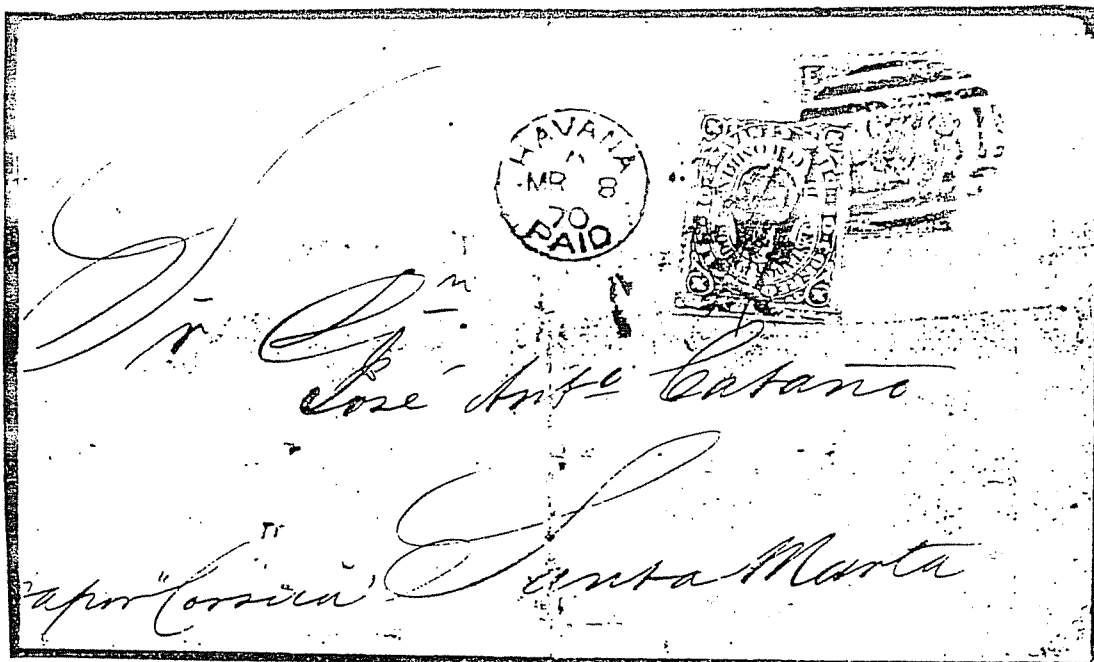 HAVANA
MR 8
70
PAID
Sr Dn
José Anto Cataño
Santa Marta
Vapor "Corsica"